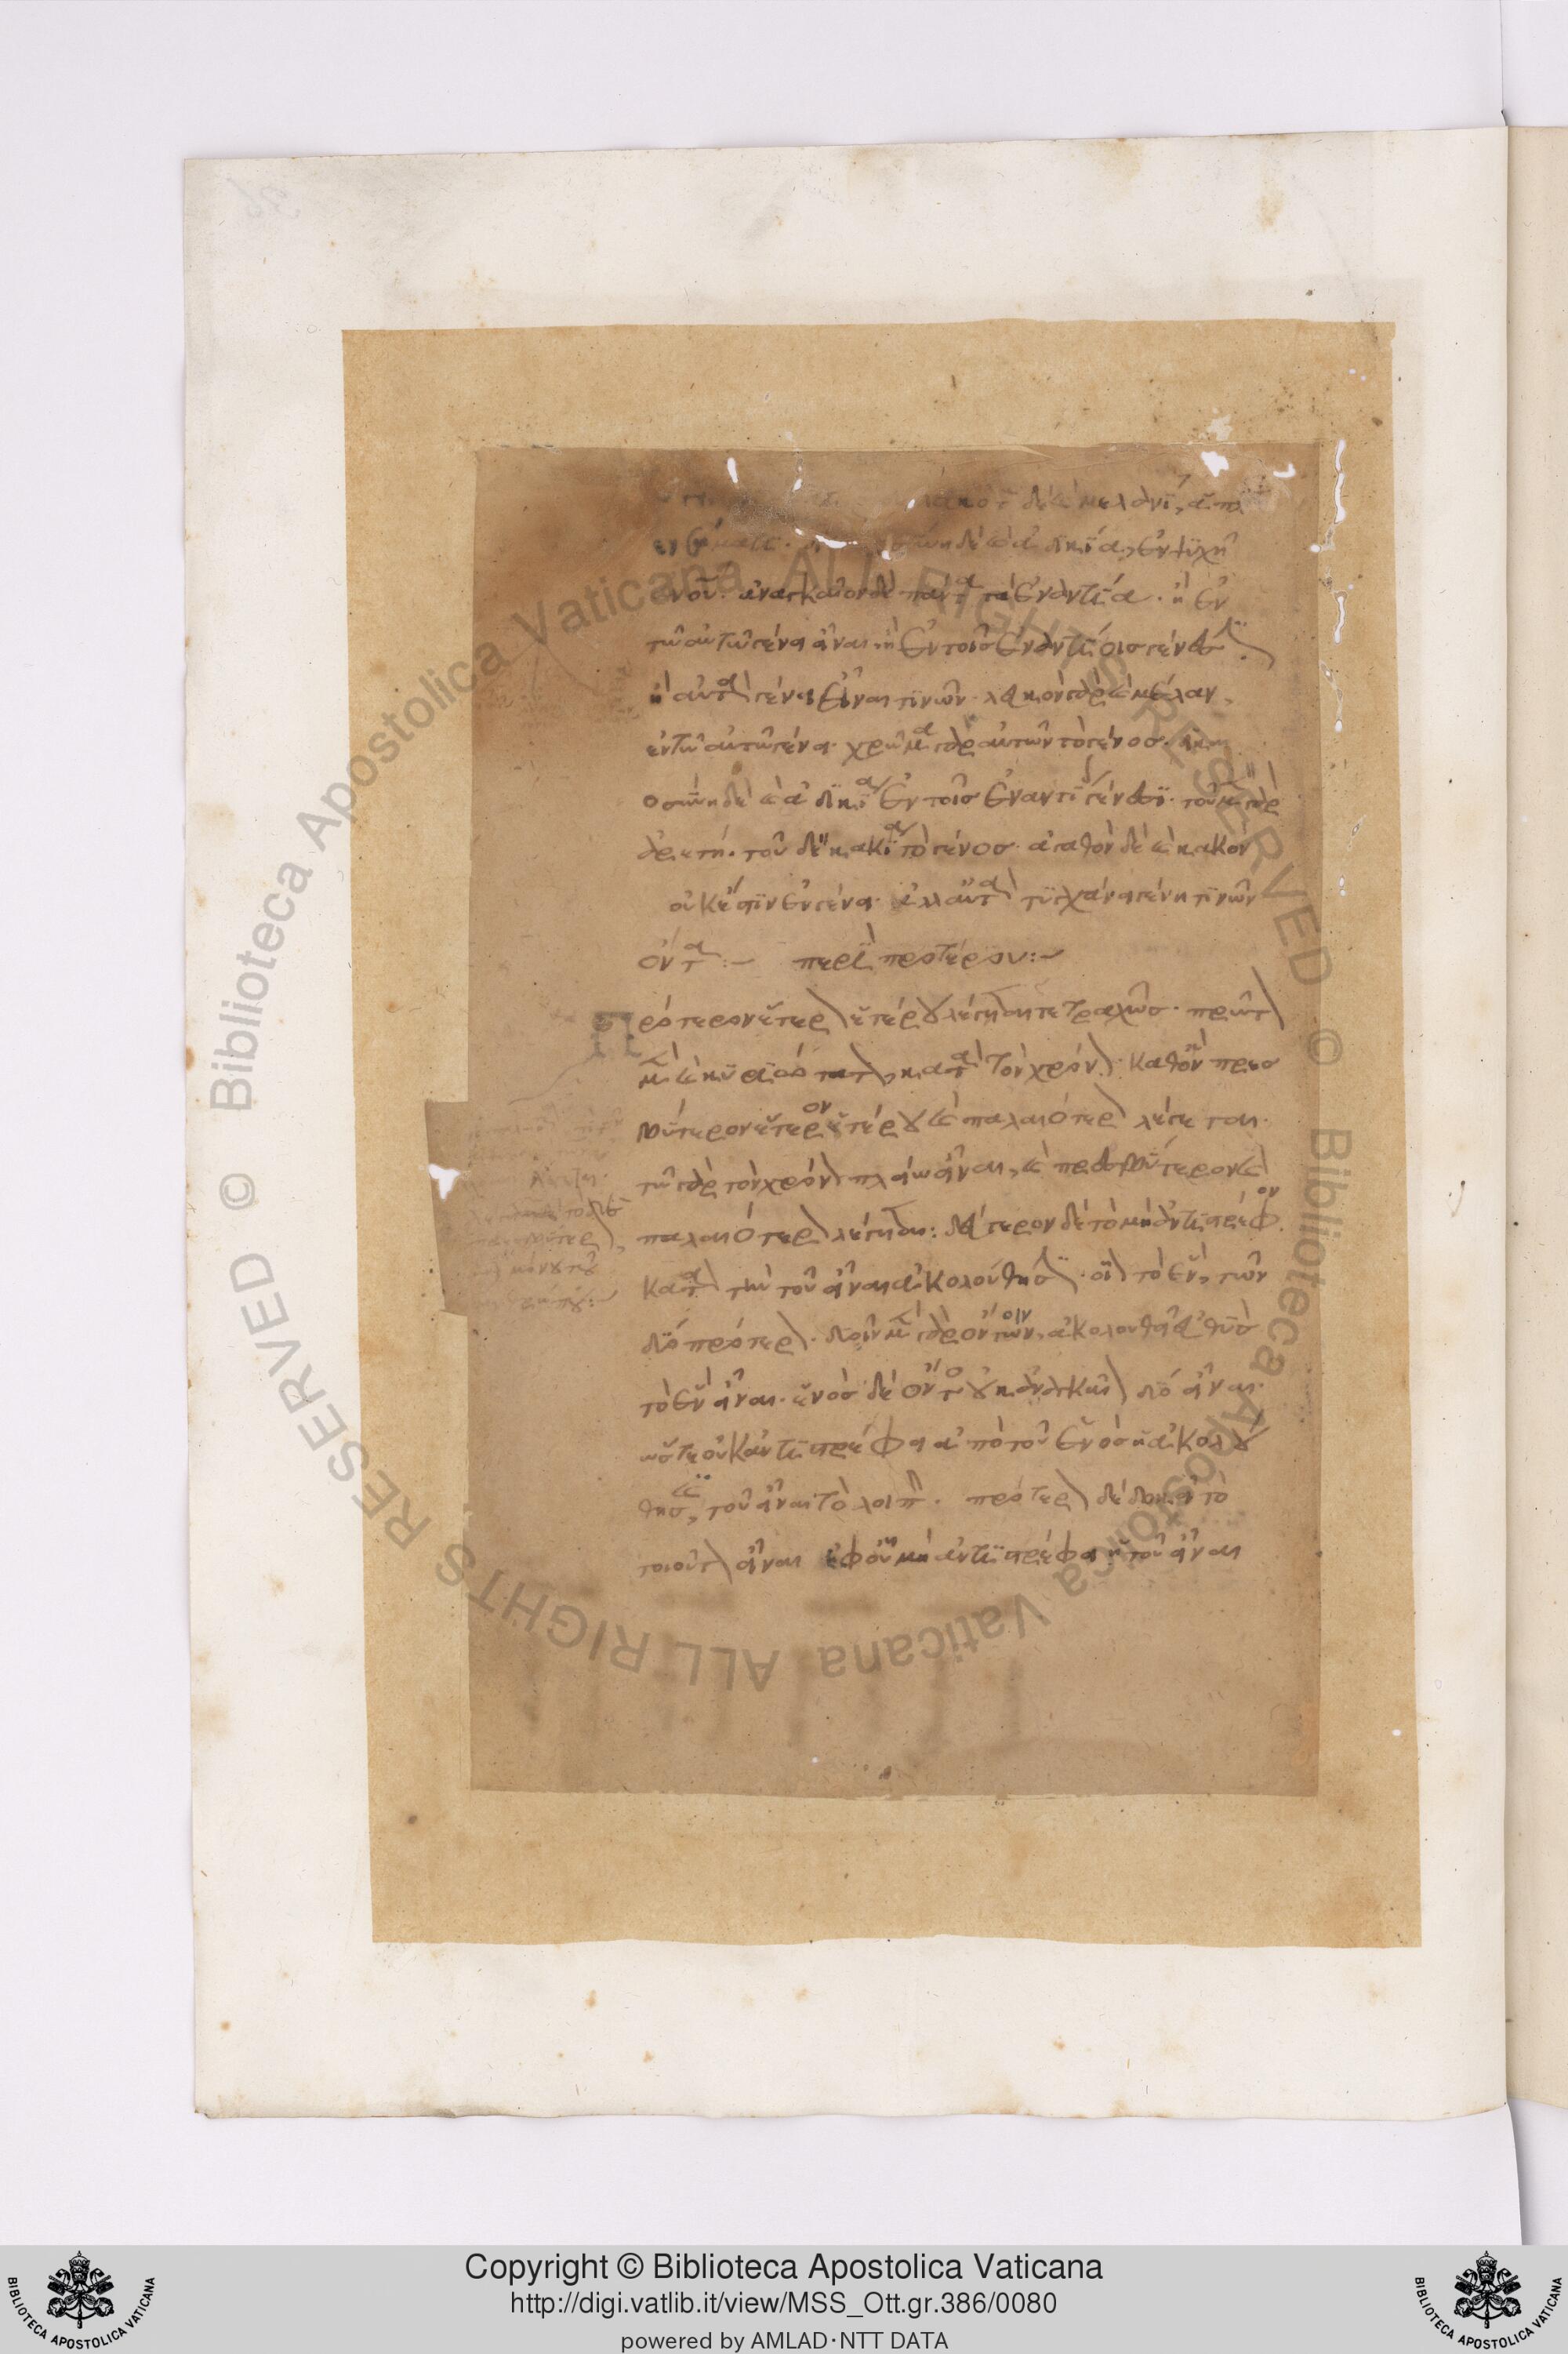 δὲ καὶ μελανί, ἁπλ
ἐν σώματι. δὲ καὶ ἀδικία, ἐν ψυχῆ
ἀναγκαῖον δὲ πάντα τὰ ἐναντία. ἢ ἐν
τῶ αὐτῶ γένει εἶναι. ἢ ἐν τοῖσ ἐναντίοισ γένεσι.
ἢ αὐτὰ γένει εἶναι τινῶν. λευκὸν γὰρ καὶ μέλαν,
ἐν τῶ αὐτῶ γένει. χρῶμα γὰρ αὐτῶν τὸ γένοσ. δικαι
οσύνη δὲ καὶ ἀδικία ἐν τοῖσ ἐναντίοισ γένεσι. τοῦ μὲν γὰρ
ἀρετή. τοῦ δὲ κακία τὸ γένοσ. ἀγαθὸν δὲ καὶ κακὸν
οὐκ ἔστιν ἐν γένει. ἀλλ' αὐτὰ τυγχάνει γένη τινῶν
ὄντα:— περὶ προτέρου:—
Πρότερον ἕτερον ἑτέρου λέγεται τετραχῶσ. πρῶτον
μὲν καὶ κυριώτατον, κατὰ τὸν χρόνον. καθ' ὃν πρεσ
βύτερον ἕτερον ἑτέρου καὶ παλαιότερον λέγεται.
τῶ γὰρ τὸν χρόνον πλείω εἶναι, καὶ πρεσβύτερον καὶ
παλαιότερον λέγεται: δεύτερον δὲ τὸ μὴ ἀντιστρέφον.
κατὰ τὴν τοῦ εἶναι ἀκολούθησιν. οἷον τὸ ἓν, τῶν
δύο πρότερον. δυοῖν μὲν γὰρ ὄντων, ἀκολουθεῖ εὐθὺσ
τὸ ἓν εἶναι. ἑνὸσ δὲ ὄντοσ οὐκ ἀναγκαῖον δύο εἶναι.
ὥστε οὐκ ἀντιστρέφει ἀπὸ τοῦ ἑνὸσ ἡ ἀκολού
θησισ, τοῦ εἶναι τὸ λοιπόν. πρότερον δὲ δοκεῖ τὸ
τοιοῦτον εἶναι ἀφ' οὗ μὴ ἀντιστρέφει ἡ τοῦ εἶναι
Copyright © Biblioteca Apostolica Vaticana
http://digi.vatlib.it/view/MSS_Ott.gr.386/0080
powered by AMLAD·NTT DATA
BIBLIOTECA APOSTOLICA VATICANA
BIBLIOTECA APOSTOLICA VATICANA
© Biblioteca Apostolica Vaticana ALL RIGHTS RESERVED
© Biblioteca Apostolica Vaticana ALL RIGHTS RESERVED